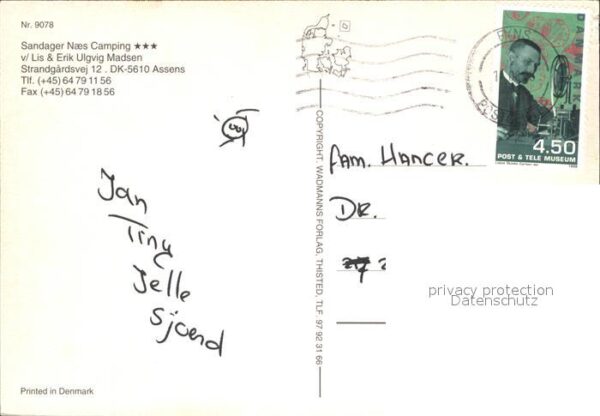 Nr. 9078
Sandager Næs Camping ★★★
v/ Lis & Erik Ulgvig Madsen
Strandgårdsvej 12 . DK-5610 Assens
Tlf. (+45) 64 79 11 56
Fax (+45) 64 79 18 56
Jan
Tiny
Jelle
Sjoerd
Printed in Denmark
COPYRIGHT: WADMANNS FORLAG, THISTED, TLF. 97 92 31 66
FYNS
POS
DANMARK
4.50
POST & TELE MUSEUM
FAM. HANCER.
DR.
privacy protection
Datenschutz